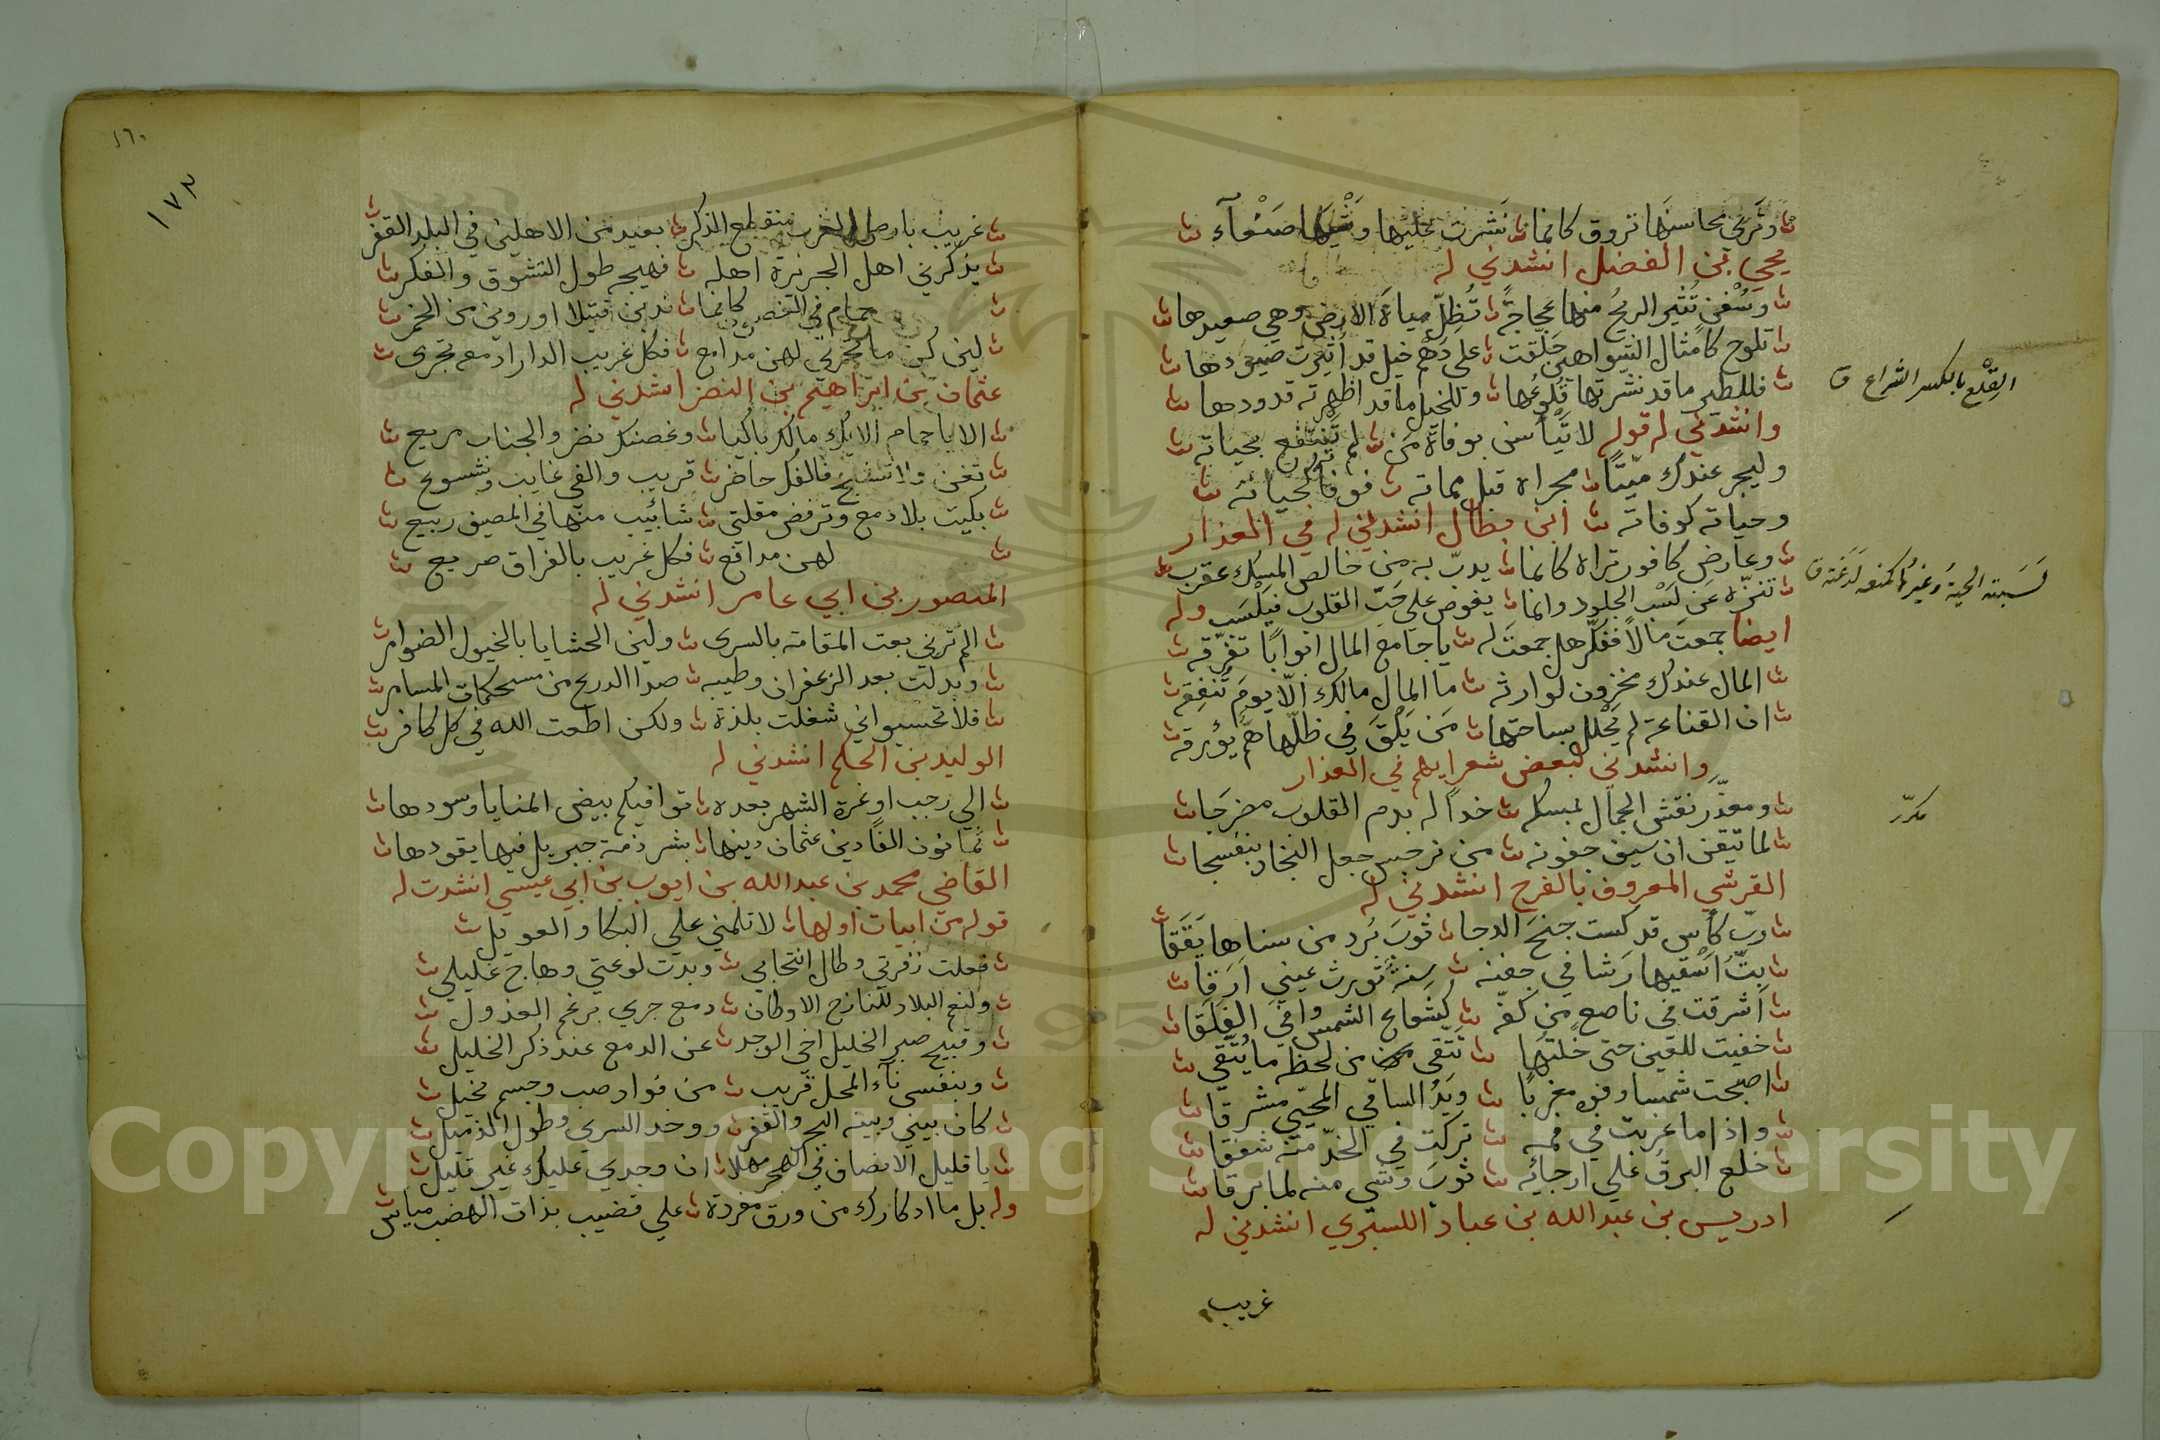 وترى محاسنها تروق كانما نشرت عليها وشيها صنعآء
يحيى بن الفضل انشدني له
وسُفن تُثير الريحُ منها عجاجةً تُظِلّ مياهَ الارض وهي صعيدها
تلوح كامثال الشواهين حَلّقت على دُهْم خيل قد اثيرت
فللطير ما قد نشرتها قُلُوعُها وللخيل ما قد اظهرته قدودها
وانشدني له قوله لا تَيأسن بوفاة مَن لم تنتفع بحياته
وليجر عندك ميّتًا مجراه قبل مماته فوفاته كحياته
وحياته كوفاته ابن بطال انشدني له في العذار
وعارض كافور تراه كانما يدبّ به من خالص المسك عقرب
تنزّه عن لَسْب الجلود وانما يغوض على حَبّ القلوب فيلسَب وله
ايضا جمعتَ مالاً ففكّر هل جمعتَ له يا جامع المال ابوابًا تفرّقه
المال عندك مخزون لوارثه ما المال مالك الّا يومَ تُنفِقه
ان القناعة لم يَحْلل بساحتها مَن يَلْقَ في ظلّها همًّا يؤرقه
وانشدني لبعض شعرايهم في العذار
ومعذّر نقش الجمال بمسكه خدا له بدم القلوب مضرجَا
لما تيقن ان سيف جفونه من نرجس جعل النجاد بنفسجا
القرشي المعروف بالفرج انشدني له
ربّ كأس قد كست جنحَ الدجا ثوبَ بُرد من سناها يَقَقَا
بتُّ اَسْقيها رَشا في جفنه سِنةٌ تورث عيني اَرَقا
اشرقت في ناصع من كفّه كشعاع الشمس وافي الفَلَقا
خفيت للعين حتى خلتها تَتّقي من لحظ ما يُتّقي
اصبحت شمسا وفوه مغربًا ويَدُ الساقي المحيّي مشرقا
واذا ما غربت في فمه تركت في الخدّ منه شفقا
خلع البرقُ على ارجائه ثوبَ وشي منه لما برقا
ادريس بن عبد الله بن عباد اللسبّوي انشدني له
غريب
القِلْع بالكسر الشراع ق
لسَبته الحية وغيرها كمنعه لدغته ق
مكرّر
١٦٠
١٧٣
غريب بارض الغرب منقطع الذكر بعيد من الاهلين في البلد القفر
يذكرني اهل الجزيرة اهله فهيج طول التشوق والفكر
حمام في الغصن كانما ندبن قتيلا او روين من الخمر
لين كن ما تجري لهن مدامع فكل غريب الدار ادمعه تجرى
عثمان بن ابراهيم بن النضر انشدني له
الا يا حمام الايك مالك باكيا وغصنك نضر والجناب مريع
تغن ولا تنشج فالفك حاضر قريب والفي غايب وشسوع
بكيت بلا دمع وترفض مقلتي شآئيب منها في المصيف ربيع
لهن مدافع فكل غريب بالفراق صريع
المنصور بن ابي عامر انشدني له
الم ترني بعت المقامة بالسرى ولين الحشايا بالخيول الضوامر
وبدلت بعد الزعفران وطيبه صدا الدرع من مستحكمات المسامر
فلا تحسبوا اني شغلت بلذة ولكن اطعت الله في كل كافر
الوليد بن الحكم انشدني له
الي رجب او غرة الشهر بعده توافيكم بيض المنايا وسودها
ثمانون الفًا دين عثمان دينها بشرذمة جبريل فيها يقودها
القاضي محمد بن عبد الله بن ايوب بن ابي عيسي انشدت له
قوله من ابيات اولها لا تلمني علي البكا والعويل
فعلت زفرتي وطال انتحابي وبدت لوعتي وهاج غليلي
ولنعم البلاد للنازح الاوطان دمع جري برغم العذول
وقبيح صبر الخليل اخي الوجد عن الدمع عند ذكر الخليل
وبنفسي نآء المحل قريب من فواد صب وجسم نحيل
كان بيني وبينه البحر والقفر ووخد السري وطول الذميل
يا قليل الانصاف في الهجر مهلا ان وجدي عليك غير قليل
وله بل ما ادكارك من ورق مغردة علي قضيب بذات الهضب مياس
Copyright © King Saud University